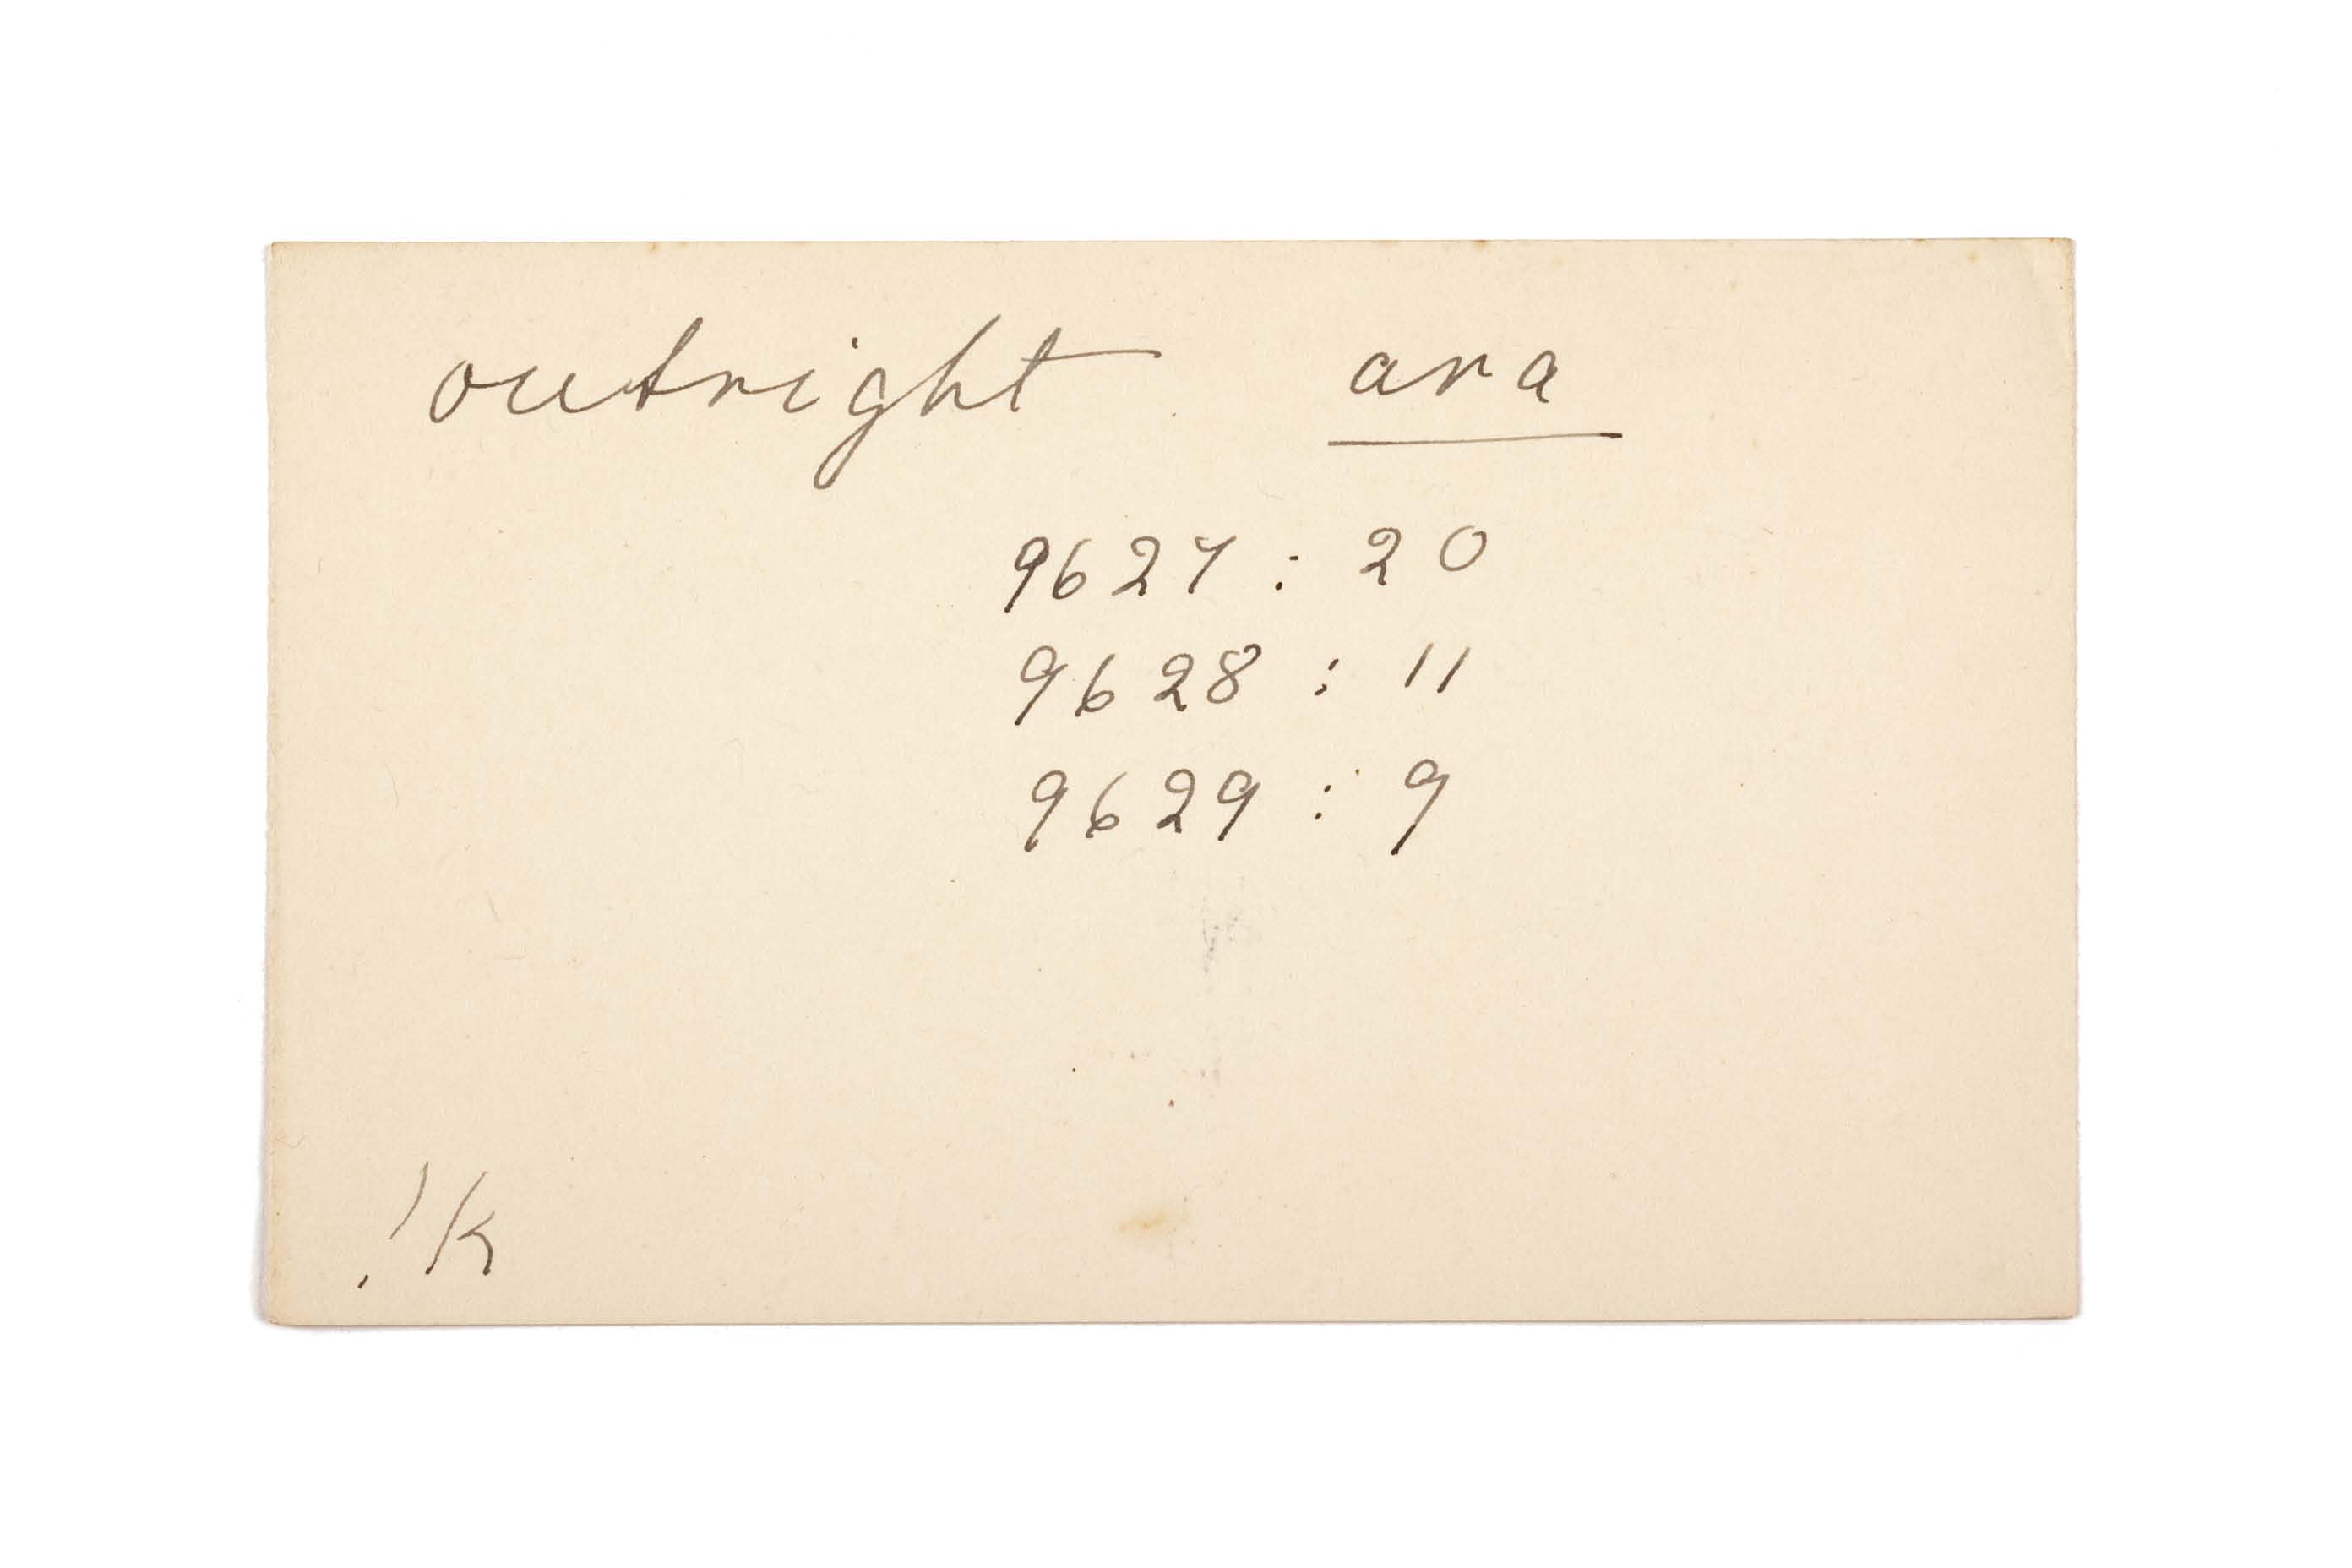 outright ara
9627 : 20
9628 : 11
9629 : 9
!k